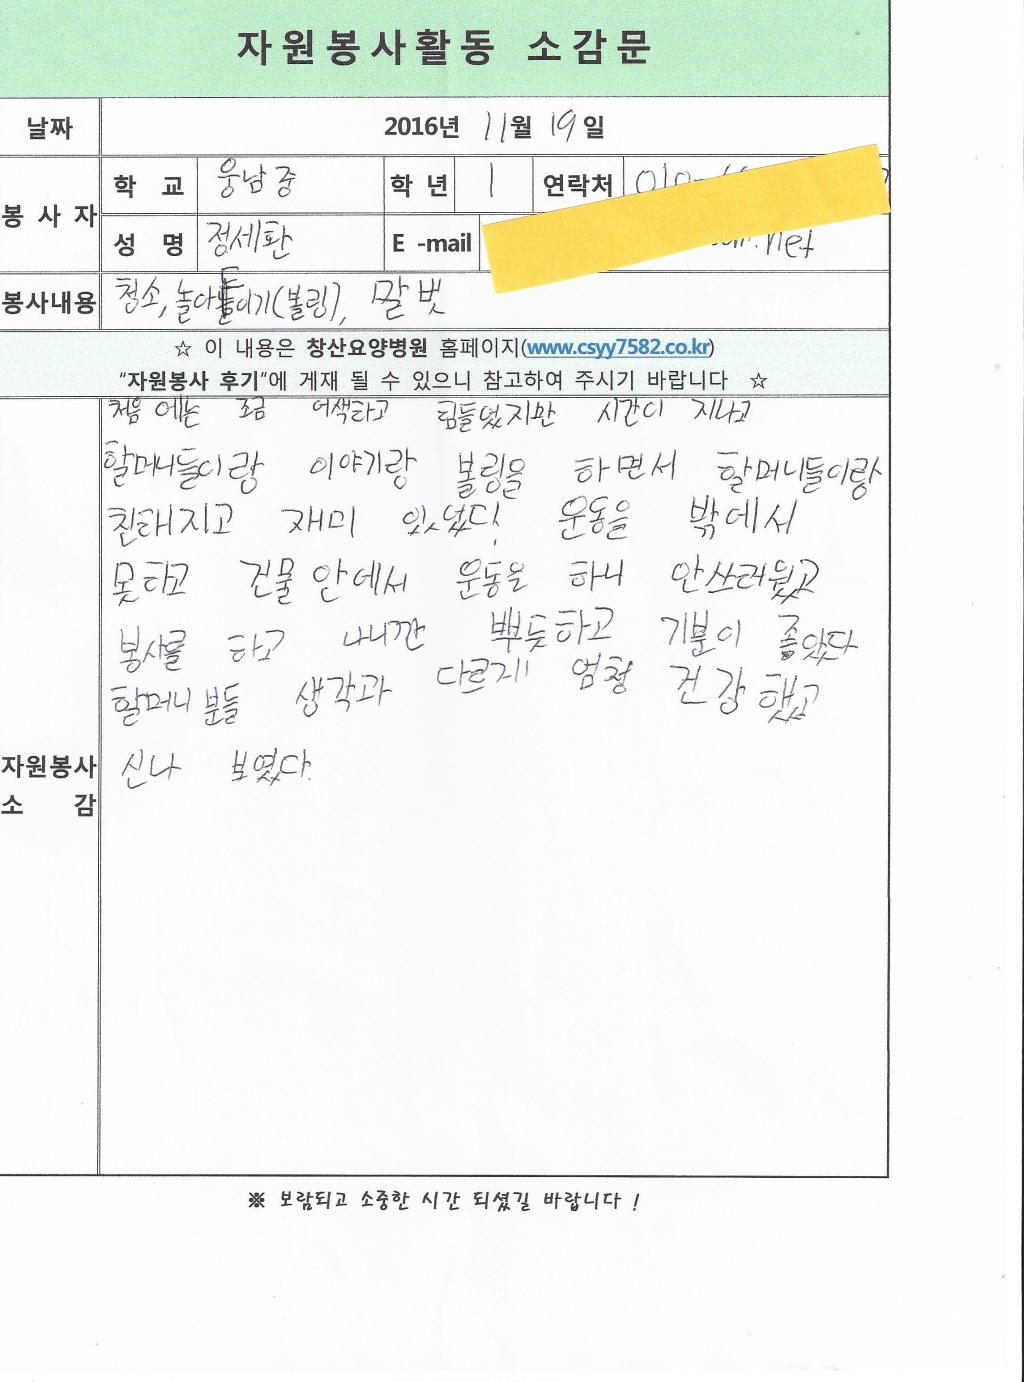 자원봉사활동 소감문
날짜 2016년 11월 19일
봉사자 학교 웅남중 학년 1 연락처 010-
성명 정세환 E-mail .net
봉사내용 청소, 놀아드리기(볼링), 말벗
☆ 이 내용은 창산요양병원 홈페이지(www.csyy7582.co.kr)
"자원봉사 후기"에 게재 될 수 있으니 참고하여 주시기 바랍니다 ☆
자원봉사 소감
처음에는 조금 어색하고 힘들었지만 시간이 지나고
할머니들이랑 이야기랑 볼링을 하면서 할머니들이랑
친해지고 재미 있었다. 운동을 밖에서
못하고 건물 안에서 운동을 하니 안쓰러웠고
봉사를 하고 나니깐 뿌듯하고 기분이 좋았다
할머니 분들 생각과 다르게 엄청 건강했고
신나 보였다.
※ 보람되고 소중한 시간 되셨길 바랍니다 !